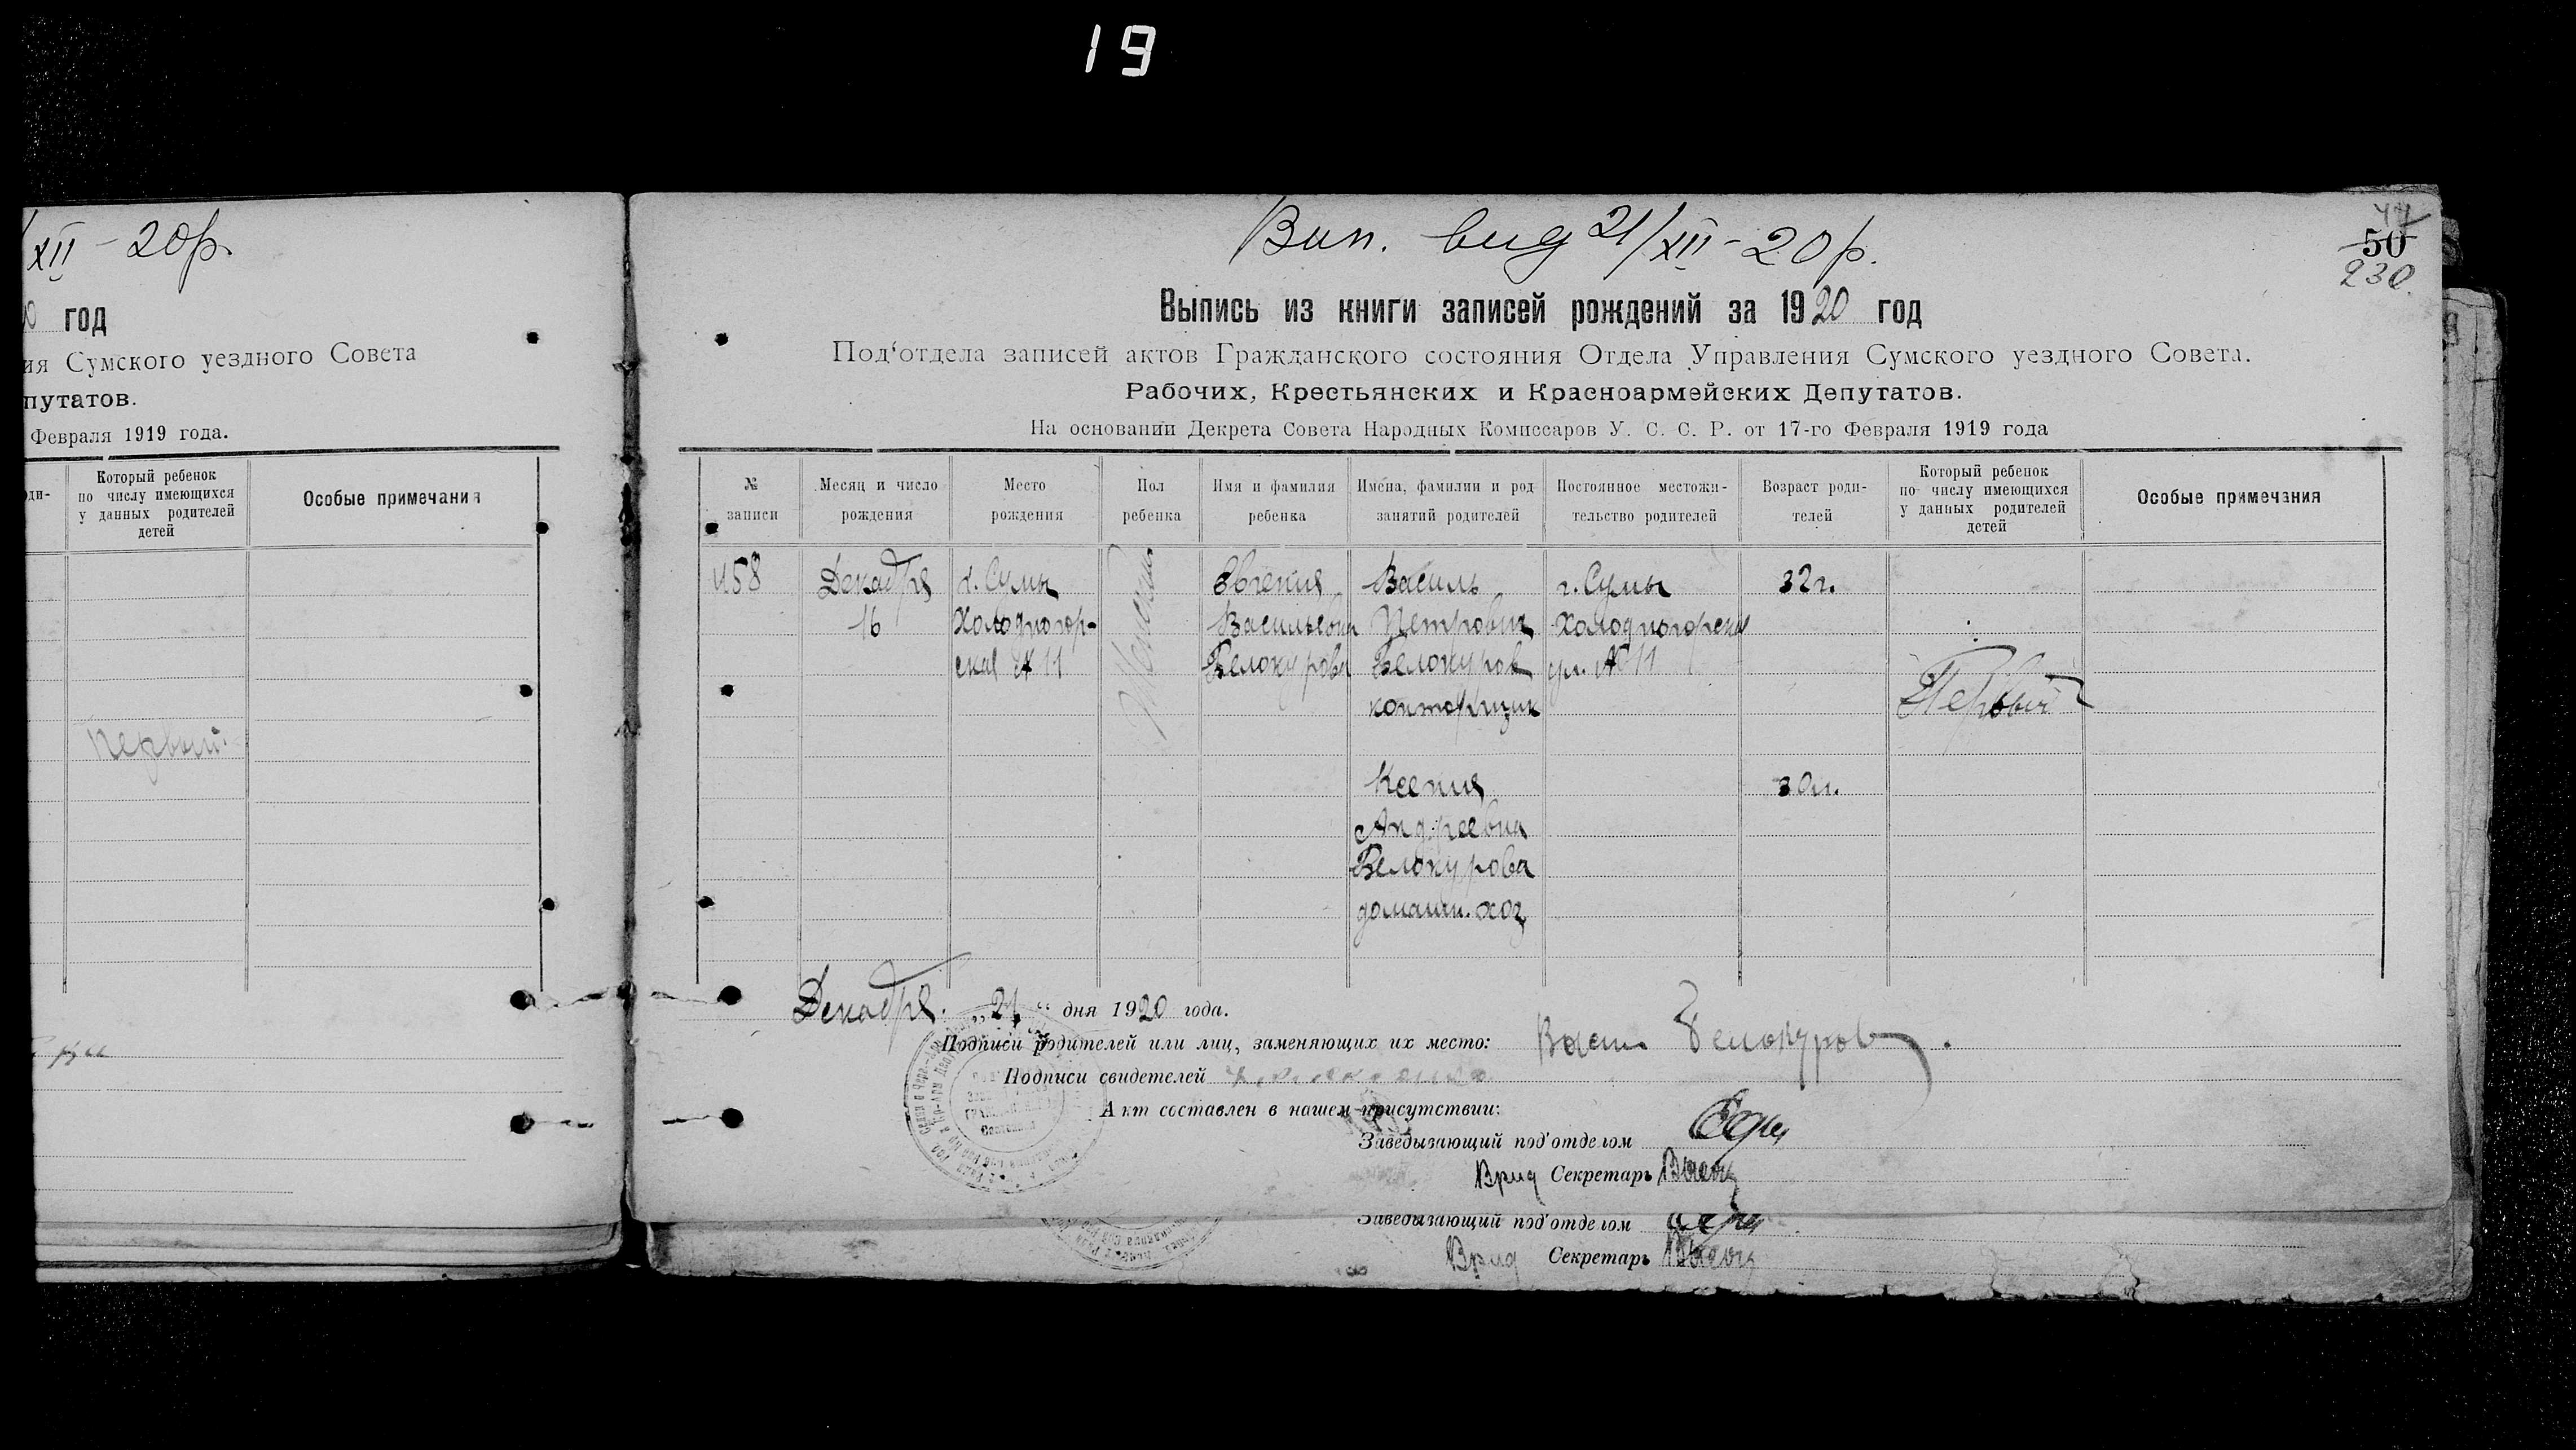 19
XII - 20р.
год
ия Сумского уездного Совета
путатов.
Февраля 1919 года.
ди-
Который ребенок
по числу имеющихся
у данных родителей
детей
Особые примечания
Первый.
Вип. вид 21/XII - 20р.
47
50
230
Выпись из книги записей рождений за 1920 год
Под'отдела записей актов Гражданского состояния Отдела Управления Сумского уездного Совета.
Рабочих, Крестьянских и Красноармейских Депутатов.
На основании Декрета Совета Народных Комиссаров У. С. С. Р. от 17-го Февраля 1919 года
№
записи
Месяц и число
рождения
Место
рождения
Пол
ребенка
Имя и фамилия
ребенка
Имена, фамилии и род
занятий родителей
Постоянное местожи-
тельство родителей
Возраст роди-
телей
Который ребенок
по числу имеющихся
у данных родителей
детей
Особые примечания
458
Декабря
16
г. Сумы
Холодногор-
ская № 11
Женский
Евгения
Васильевна
Белокурова
Василь
Петрович
Белокуров
конторщик
г. Сумы
Холодногорская
ул. № 11
32г.
Первый
Ксения
Андреевна
Белокурова
домашн. хоз
30л.
Декабря. „21“ дня 1920 года.
Подписи родителей или лиц, заменяющих их место: Васил Белокуров
Подписи свидетелей
Акт составлен в нашем присутствии:
Заведывающий под'отделом
Врид Секретарь
Заведывающий под'отделом
Врид Секретарь